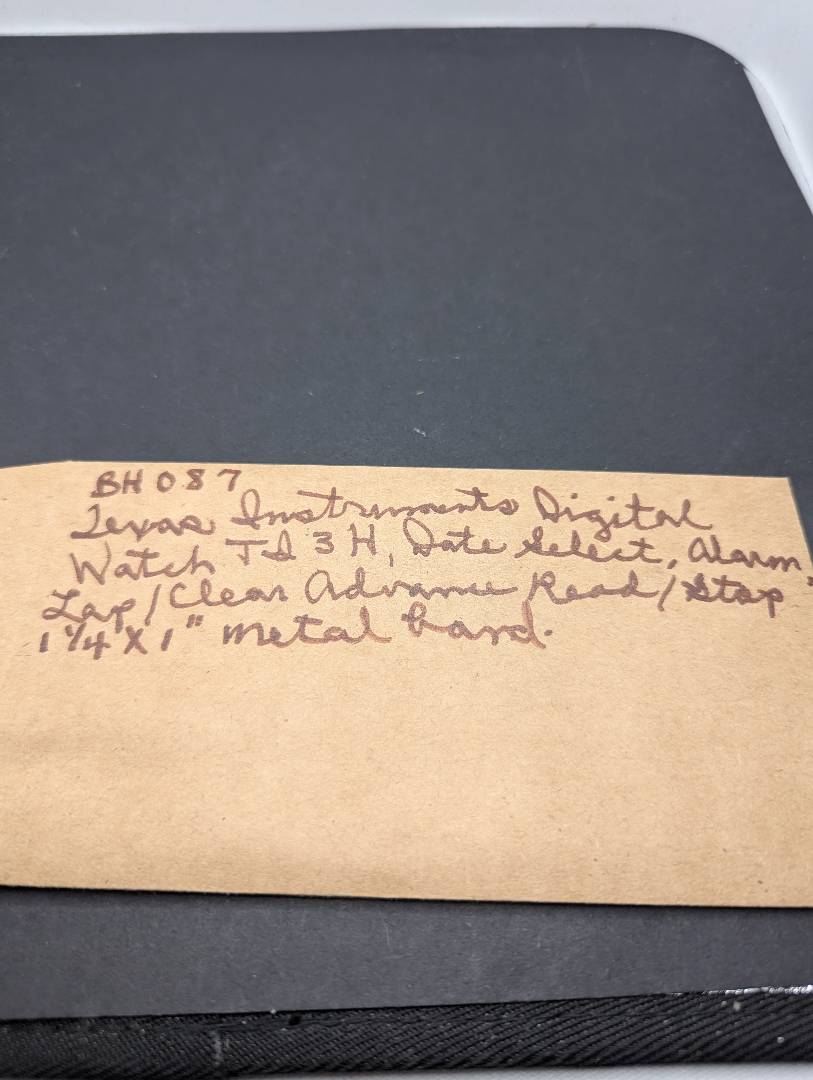 BH 087
Texas Instruments Digital
Watch TI 3 H, Date Select, Alarm
Lap/Clear Advance Read/Stop
1 1/4" X 1" metal band.